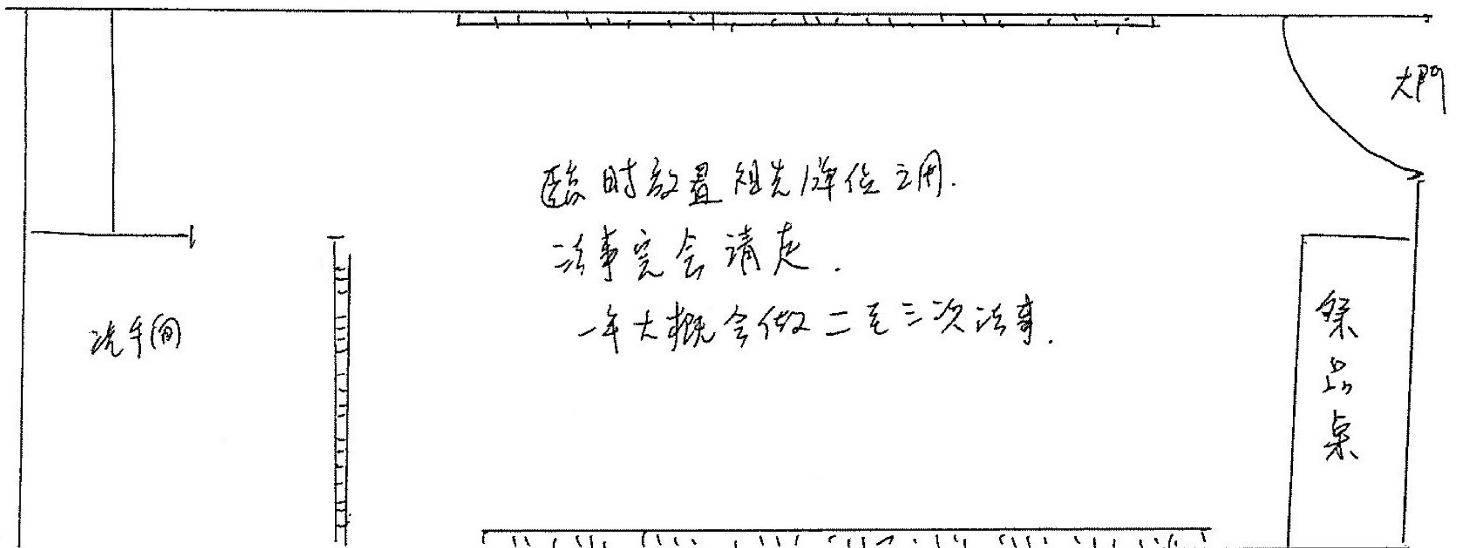 大門
臨时放置祖先牌位之用.
法事完会请走.
一年大概会做二至三次法事.
洗手间
祭品桌